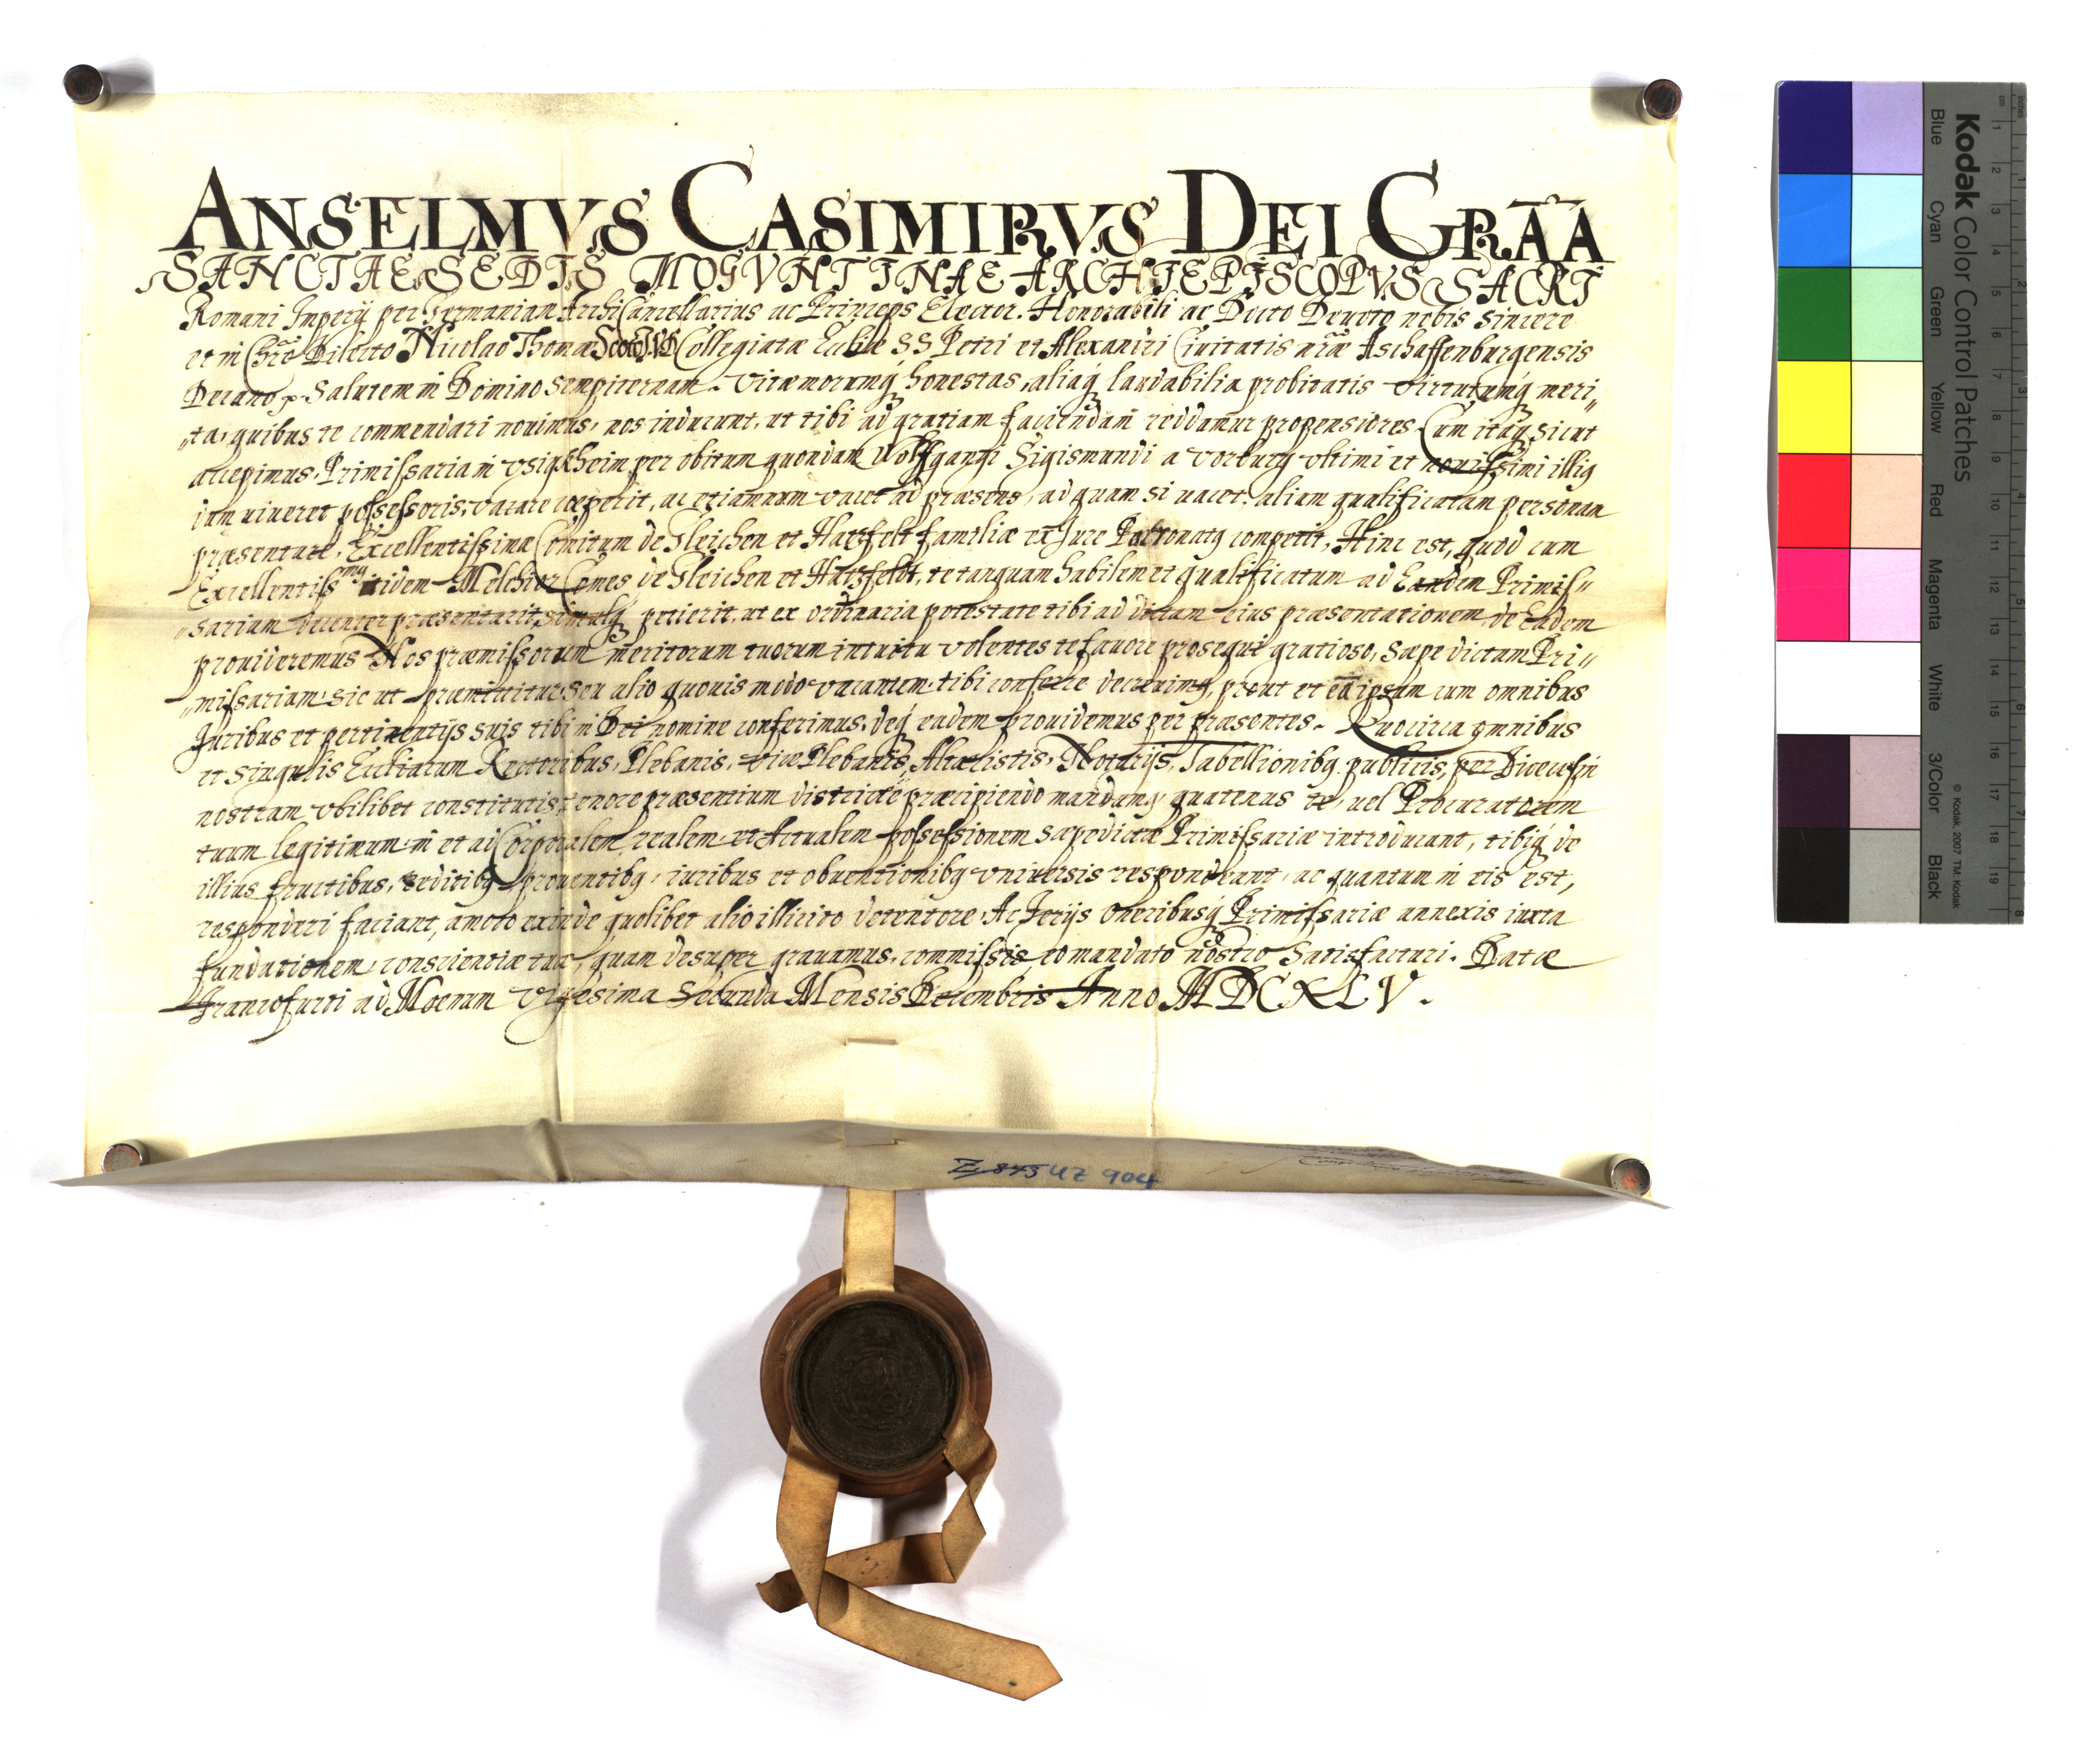 ANSELMVS CASIMIRVS DEI GRÃA
SANCTAE SEDIS MOGVNTINAE ARCHIEPISCOPVS SACRI
Romani Imperij per Germaniam ArchiCancellarius ac Princeps Elector. Honorabili ac Docto Devoto nobis sincere
et in Chr̃o Dilecto Nicolao Thomæ Collegiatæ Eccliæ SS Petri et Alexandri Ciuitatis nr̃æ Aschaffenburgensis
Decano Salutem in Domino sempiternam. Vitæ morumq́ honestas, aliaq́ laudabilia probitatis virtutumq́ meri„
„ta, quibus te commendari nouimus, nos inducunt, ut tibi ad gratiam faciendam̃ reddamur propensiores. Cum itaq́ sicut
accepimus, Primissaria in Vsigkheim per obitum quondam Wolffgangi Sigismundi a Vorburg vltimi et nouissimi illig
dum uiueret possessoris, vacare cæperit, ac etiamnum vacet ad præsens, ad quam si uacet, aliam qualificatam personam
præsentare, Excellentissimæ Comitum de Gleichen et Hatzfelt familiæ ex Jure Patronatg competit, Hinc est, quod cum
Excellentissmg itidem Melchior Comes de Gleichen et Hatzfeldt, te tanquam habilem et qualificatum ad Eandem Primis„
„sariam decenter præsentarit, simulq́ petierit, ut ex ordinaria potestate tibi ad dictam eius præsentationem de Eadem
prouideremus Nos præmissorum meritorum tuorum intuitu volentes te fauore prosequi gratioso, sæpe dictam Pri„
„missariam, sic ut præmittitur, seu alio quouis modo vacantem, tibi conferre decreuimg, prout et eã ipsam cum omnibus
Juribus et pertinentijs suis tibi in Dei nomine conferimus, deq́ eadem prouidemus per præsentes. Quocirca omnibus
et singulis Eccliarum Rectoribus, Plebanis, viceplebanis, Altaristis, Notarijs, Tabellionibg publicis, per Diœcesin
nostram vbilibet constitutis, tenore præsentium districtè præcipiendo mandamg, quatenus te, uel Procuratorem
tuum legitimum in et ad Corporalem, realem et Actualem possessionem sæpedictæ Primissariæ introducant, tibiq́ de
illius fructibus, reditibg prouentibg, iuribus et obuentionibg vniuersis respondeant, ac quantum in eis est,
responderi faciant, amoto exinde quolibet alio illicito detentore, Ac Ferijs Oneribusq́ Primissariæ annexis iuxta
fundationem, conscientiæ tuæ, quam desuper grauamus, commissis, eo mandato nostro satisfacturi. Datæ
Francofurti ad Moenum Vigesima Secunda Mensis Decembris Anno MDCXLV.
Z 845 UZ 904
Kodak Color Control Patches
Blue Cyan Green Yellow Red Magenta White 3/Color Black
© Kodak, 2007 TM: Kodak
inches 1 2 3 4 5 6 7 8
cm 1 2 3 4 5 6 7 8 9 10 11 12 13 14 15 16 17 18 19